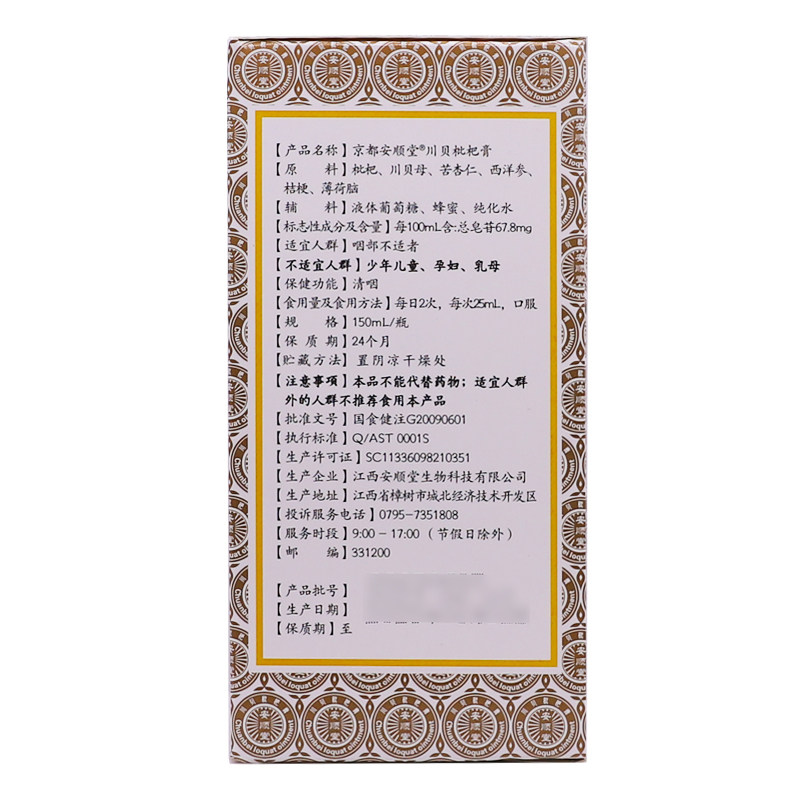 【产品名称】京都安顺堂®川贝枇杷膏
【原 料】枇杷、川贝母、苦杏仁、西洋参、
桔梗、薄荷脑
【辅 料】液体葡萄糖、蜂蜜、纯化水
【标志性成分及含量】每100mL含:总皂苷67.8mg
【适宜人群】咽部不适者
【不适宜人群】少年儿童、孕妇、乳母
【保健功能】清咽
【食用量及食用方法】每日2次，每次25mL，口服
【规 格】150mL/瓶
【保 质 期】24个月
【贮藏方法】置阴凉干燥处
【注意事项】本品不能代替药物；适宜人群
外的人群不推荐食用本产品
【批准文号】国食健注G20090601
【执行标准】Q/AST 0001S
【生产许可证】SC11336098210351
【生产企业】江西安顺堂生物科技有限公司
【生产地址】江西省樟树市城北经济技术开发区
【投诉服务电话】0795-7351808
【服务时段】9:00-17:00（节假日除外）
【邮 编】331200
【产品批号】
【生产日期】
【保质期】至
安顺堂
Chuanbei loquat ointment